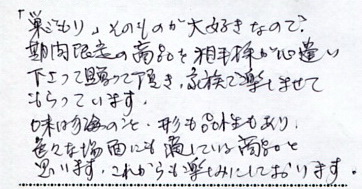 「巣ごもり」そのものが大好きなので、
期間限定の商品を相手様が心遣い
下さって贈って頂き、家族で楽しませて
もらっています。
味は勿論のこと、形も品性もあり、
色々な場面にも適している商品と
思います。これからも楽しみにしております。